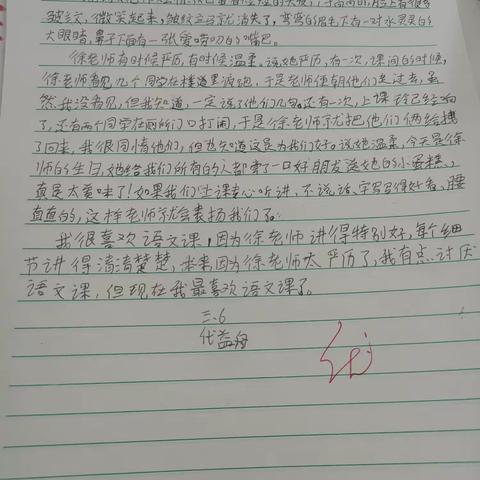 皱纹，微笑起来，皱纹立马就消失了，弯弯的眉毛下有一对水灵灵的
大眼睛，鼻子下面有一张爱唠叨的嘴巴。
徐老师有时候严厉，有时候温柔。说她严厉，有一次，课间的时候，
徐老师看见几个同学在楼道里疯跑，于是老师便朝他们走过去，虽
然我没看见，但我知道，一定说了他们几句。还有一次，上课铃已经响
了，还有两个同学在厕所门口打闹，于是徐老师就把他们俩给拽
了回来，我很同情他们，但我知道这是为我们好。说她温柔，今天是徐
师的生日，她给我们所有的人都带了一口好朋友送她的小蛋糕，
真是太美味了！如果我们上课专心听讲，不说话，字写得好看，腰
直直的，这样老师就会表扬我们了。
我很喜欢语文课，因为徐老师讲得特别好，每个细
节讲得清清楚楚，本来因为徐老师太严厉了，我有点讨厌
语文课，但现在我最喜欢语文课了。
三.6
代益舟